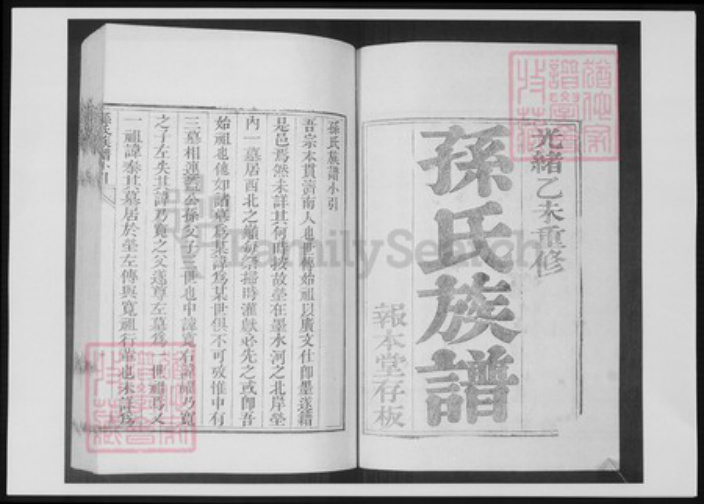 光緒乙未重修
孫氏族譜
報本堂存板
孫氏族譜小引
吾宗本貫濟南人也世傳始祖以廣文仕即墨遂籍
是邑焉然未詳其何時按故塋在墨水河之北岸塋
內一墓居西北之巔每祭掃時灌獻必先之或即吾
始祖也他如諸墓為某諱為某世俱不可攷惟中有
三墓相連公孫父子三世也中諱寬右諱乃寬
之子左失其諱乃寬之父遂尊左墓為一世祖焉又
一祖諱泰其墓居於塋左傳與寬祖行輩也未詳為
FamilySearch